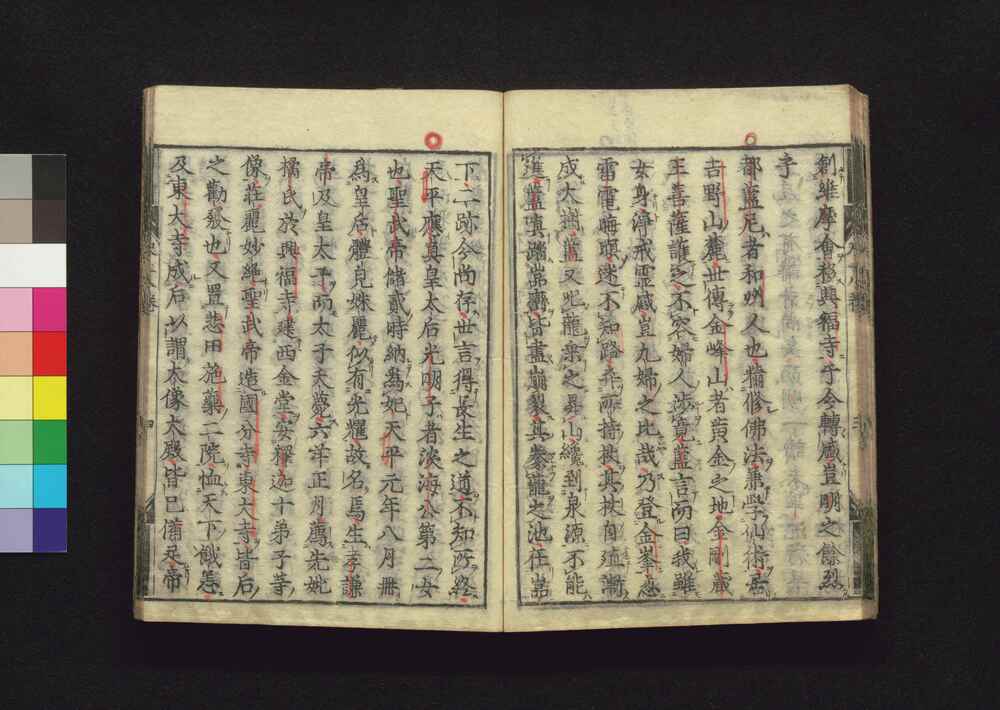 創維摩會移興福寺于今轉盛豈明之餘烈
乎
都藍尼者和州人也精修佛法兼學仙術居
吉野山麓世傳金峰山者黃金之地金剛藏
王菩薩護之不容婦人渉覽藍言而曰我雖
女身淨戒靈感豈凡婦之比哉乃登金峯忽
雷電晦暝迷不知路弃所持杖其杖自殖漸
成大樹藍又咒龍乘之昇山纔到泉源不能
進藍嗔蹈嵓嶴皆盡崩裂其豢龍之池在嵓
下二跡今尚存世言得長生之道不知所終
天平應眞皇太后光明子者淡海公第二女
也聖武帝儲貳時納爲妃天平元年八月冊
爲皇后體皃姝麗似有光耀故名焉生孝謙
帝及皇太子而太子夭薨六年正月薦先妣
橘氏於興福寺建西金堂安釋迦十弟子等
像莊麗妙絕聖武帝造國分寺東大寺皆后
之勸發也又置悲田施藥二院恤天下飢羔
及東大寺成后以謂大像大殿皆已備足帝